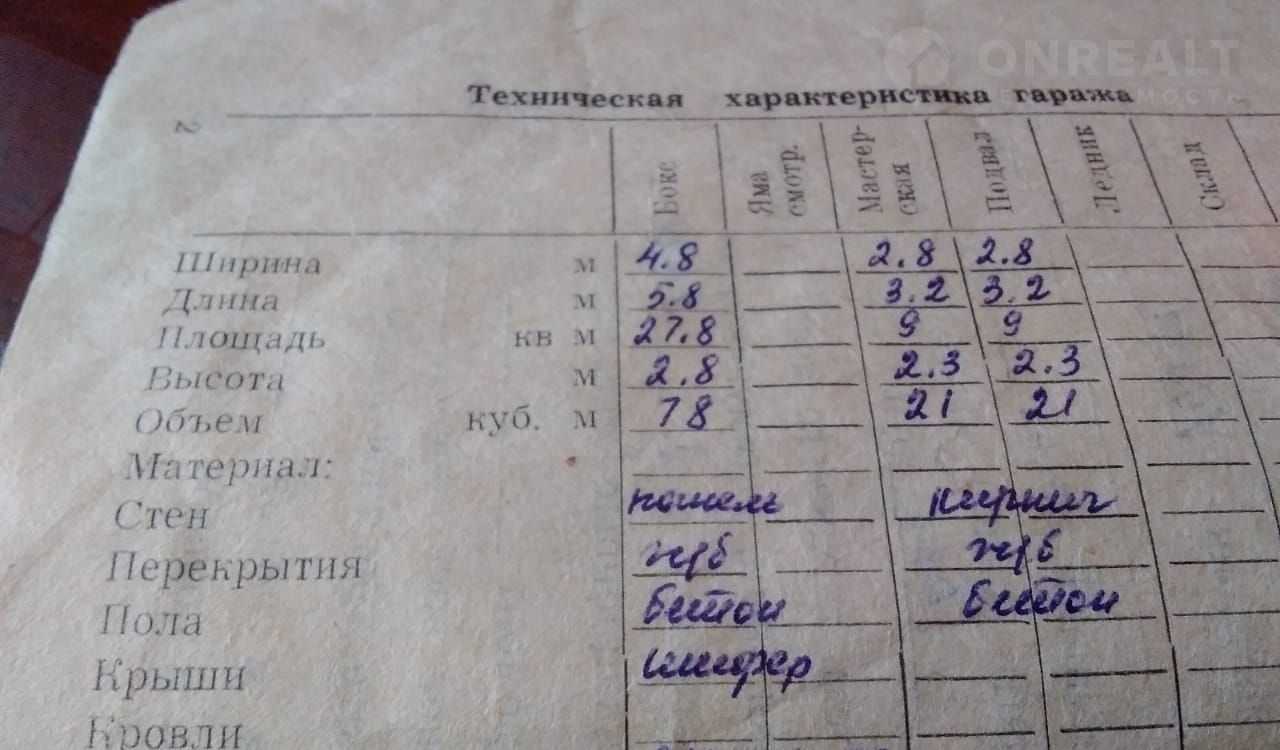 ONREALT
Техническая характеристика гаража
2
Бокс Яма смотр. Мастер-ская Подвал Ледник Склад
Ширина м 4.8 2.8 2.8
Длина м 5.8 3.2 3.2
Площадь кв м 27.8 9 9
Высота м 2.8 2.3 2.3
Объем куб. м 78 21 21
Материал:
Стен кирпич
Перекрытия ж/б ж/б
Пола бетон бетон
Крыши шифер
Кровли